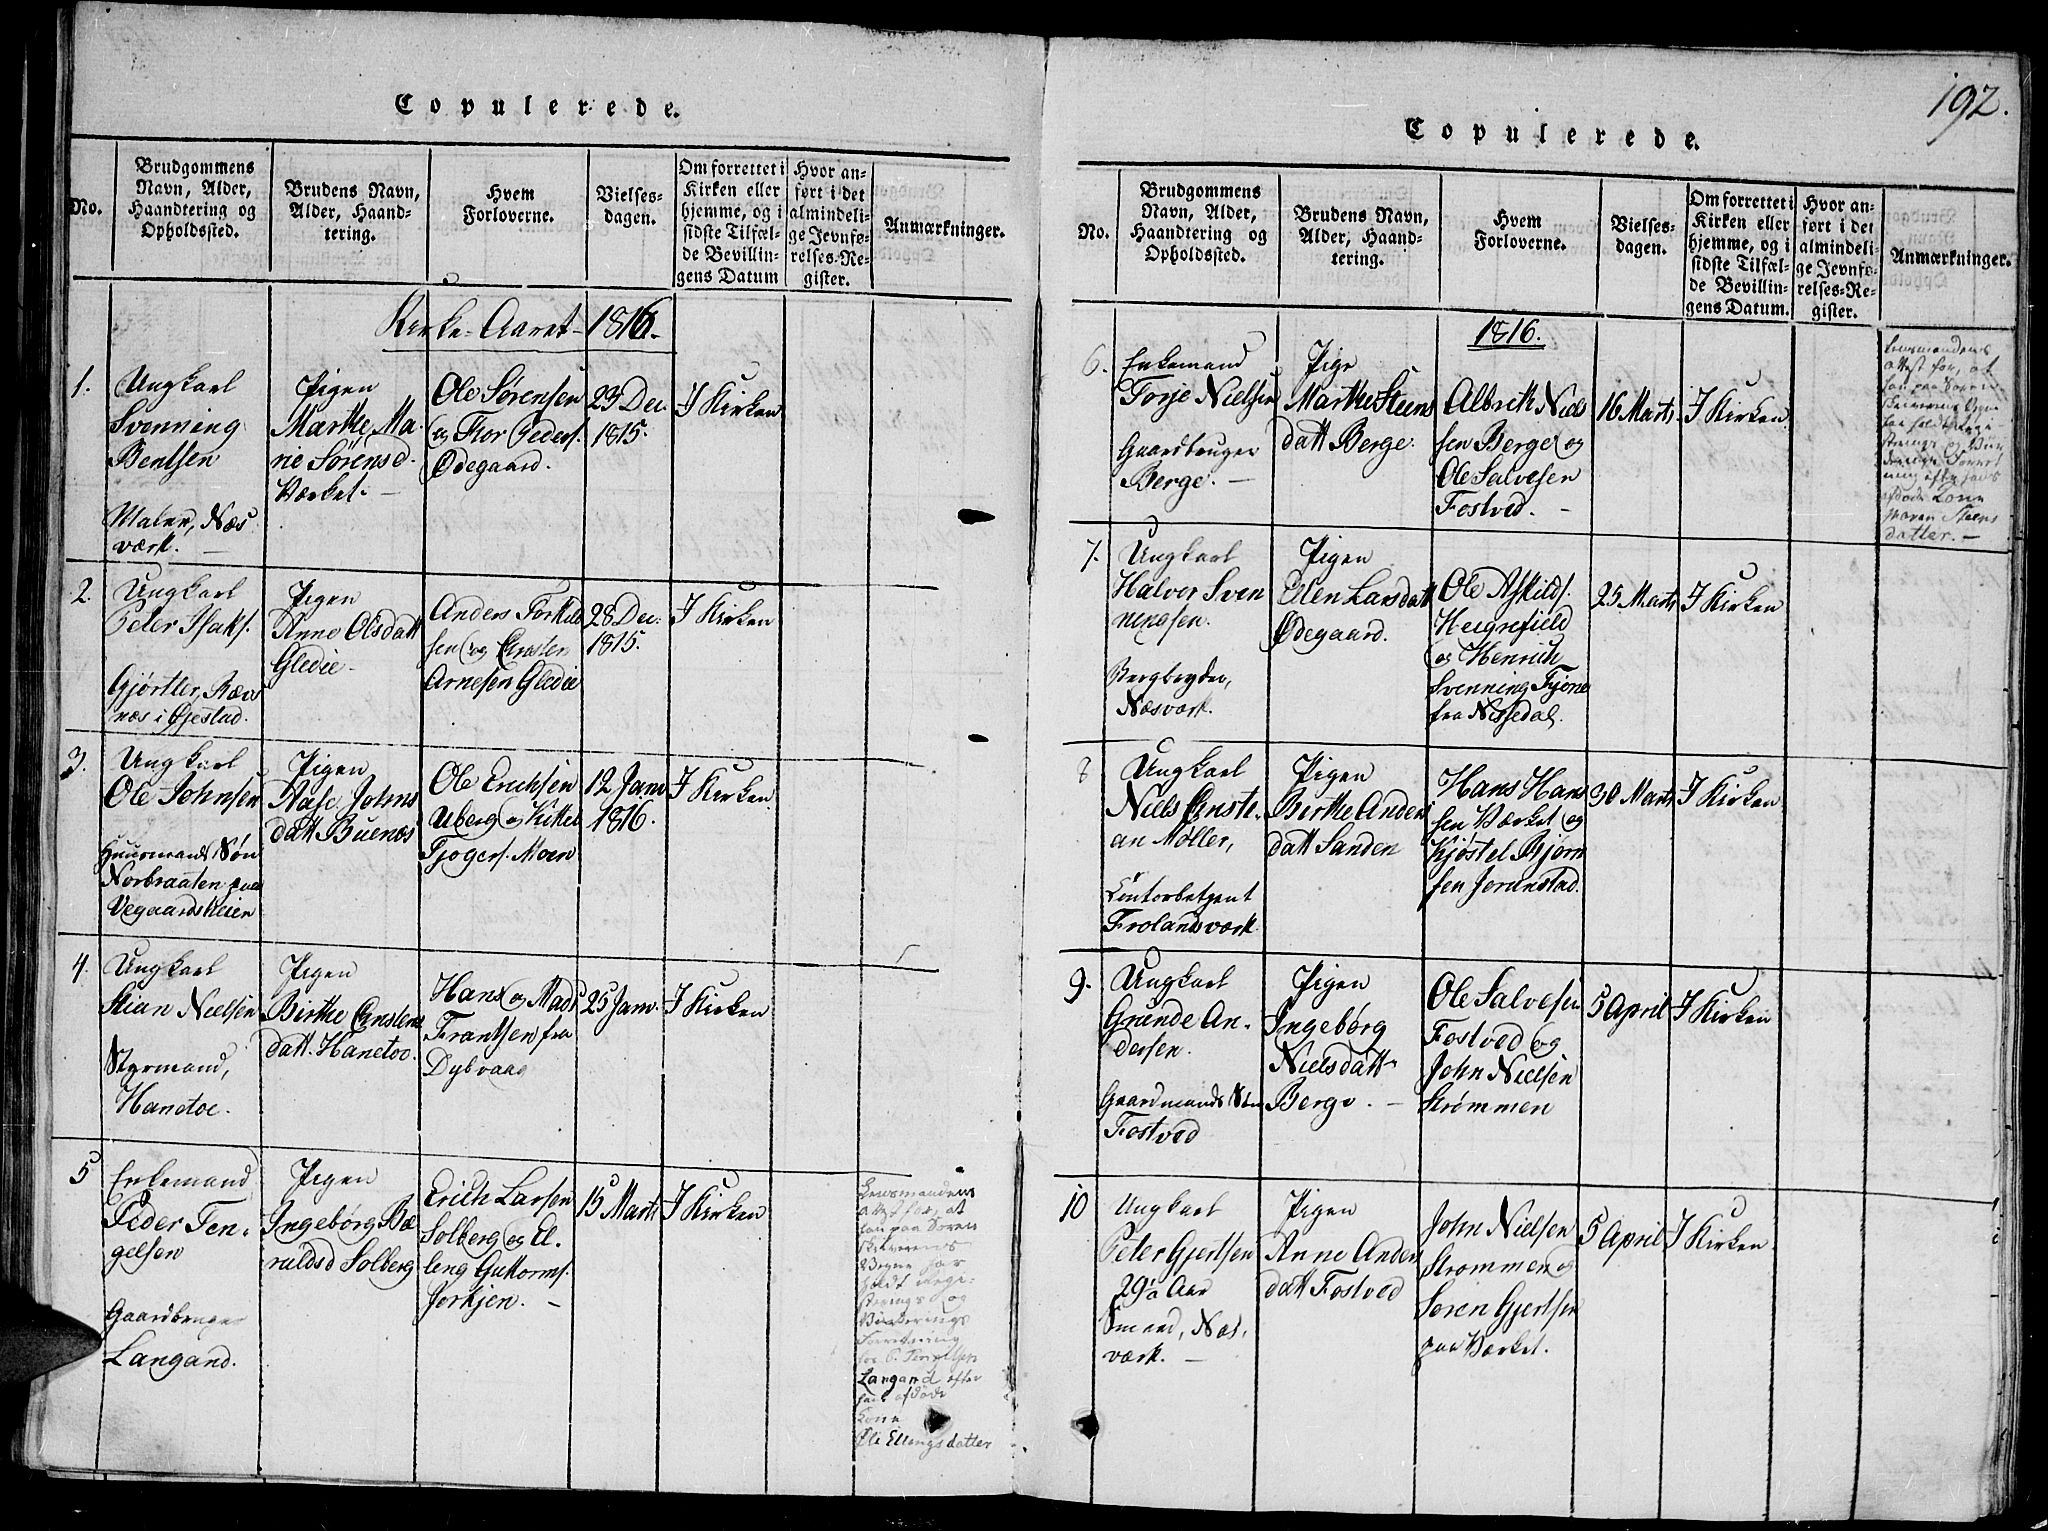 Copulerede.
No.
Brudgommens
Navn, Alder,
Haandtering og
Opholdssted.
Brudens Navn,
Alder, Haand-
tering.
Hvem
Forloverne.
Vielses-
dagen.
Om forrettet i
Kirken eller
hjemme, og i
sidste Tilfæl-
de Bevillin-
gens Datum
Hvor an-
ført i det
almindeli-
ge Jevnfø-
relses-Re-
gister.
Anmærkninger.
Kirke-Aaret-1816.
1.
Ungkarl
Svenning
Bentsen
Maler, Næs
værk.
Pigen
Marthe Ma-
rie Sørensd.
Værket.
Ole Sørensen
og Thor Peders.
Ødegaard.
23 Dec.
1815.
I Kirken
2.
Ungkarl
Peter Isaks.
Gjørtler, Ræv
næs i Øjestad.
Pigen
Anne Olsdatt
Gledie.
Anders Torkild
sen og Christen
Arnesen Gledie
28 Dec.
1815.
I Kirken
3.
Ungkarl
Ole Johnsen
Huusmands Søn
Norbraaten paa
Vegaardsheien
Pigen
Aase Johns
datt Buenæs
Ole Erichsen
Uberg og Kittel
Tjogers. Moen
12 Janv
1816.
I Kirken
4.
Ungkarl
Stian Nielsen
Styrmand,
Hanetoe.
Pigen
Birthe Christens
datt. Hanetoe.
Hans og Mads
Frantsen fra
Dybvaag
25 Janv.
I Kirken
5
Enkemand
Peder Ten-
gelsen
Gaardbruger
Langand.
Pigen
Ingebørg Bæ
ruldsd Solberg
Erich Larsen
Solberg og El-
leng Guttorms.
Jorkjen.
15 Marts
I Kirken
Lensmandens
Attest for, at
han paa Soren
skriverens
Vegne har
holdt Regi-
strerings og
Vurderings
Forretning
hos P. Tengelsen
Langand efter
hans afdøde
Kone
Øli Ellengsdatter
192.
Copulerede.
No.
Brudgommens
Navn, Alder,
Haandtering og
Opholdssted.
Brudens Navn,
Alder, Haand-
tering.
Hvem
Forloverne.
Vielses-
dagen.
Om forrettet i
Kirken eller
hjemme, og i
sidste Tilfæl-
de Bevillin-
gens Datum.
Hvor an-
ført i det
almindeli-
ge Jevnfø-
relses-Re-
gister.
Anmærkninger.
1816.
6.
Enkemand
Torje Nielsen
Gaardbruger
Berge.
Pige
Marthe Steens
datt Berge.
Albrith Niels
sen Berge og
Ole Salvesen
Fostved.
16 Marts
I Kirken
Lensmandens
Attest for, at
han paa Soren
skriverens Vegne
har holdt Regi-
strerings og Vur
derings Forret
ning efter hans
afdøde Kone
Maren Steens
datter.
7.
Ungkarl
Halver Sven
nengsen.
Bergbryder,
Næsværk.
Pigen
Elen Larsdatt
Ødegaard.
Ole Askilds.
Heigrefield
og Henrich
Svenning Fjone
fra Nissedal.
25 Marts
I Kirken
8
Ungkarl
Niels Christi-
an Møller,
Contorbetjent
Frolandsværk.
Pigen
Birthe Anders
datt Sanden
Hans Hans
sen Værket og
Kjøstel Bjørn
sen Jorunstad.
30 Marts
I Kirken
9.
Ungkarl
Grunde An-
dersen.
Gaardmands Søn
Fostved
Pigen
Ingebørg
Nielsdatt
Berge.
Ole Salvesen
Fostved og
John Nielsen
Strømmen
5 April
I Kirken
10
Ungkarl
Peter Gjertsen
29 a Aar
Smed, Næs-
værk.
Pigen
Anne Anders
datt Fostved
John Nielsen
Strømmen og
Søren Gjertsen
paa Værket.
5 April
I Kirken